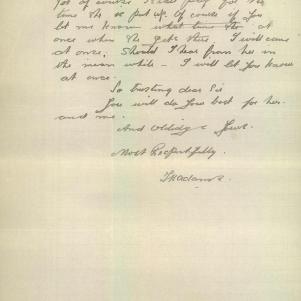 Yes of course I will pay for her
time she is put up. Of course if you
let me know what time she at
once when she gets there I will come
at once. Should I hear from her in
the mean while - I will let you know
at once.
So trusting dear Sir
You will do your best for her
and me.
And Oblidge Yours
Most Respectfully